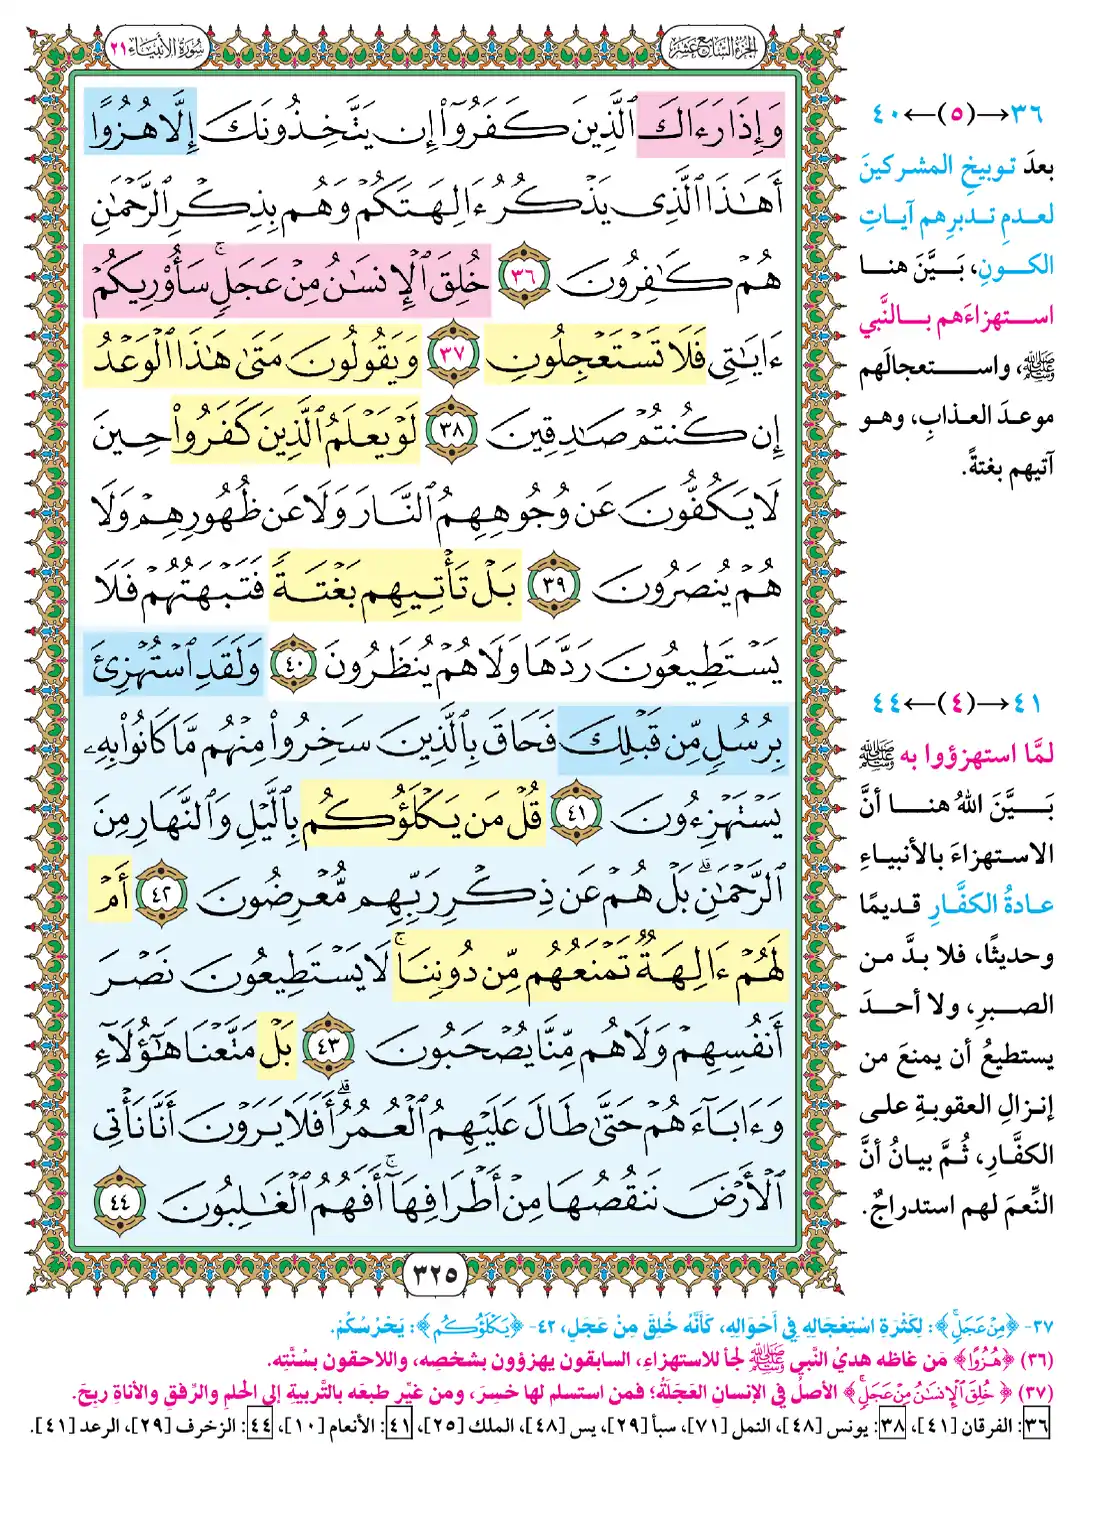 الجزء السابع عشر
سورة الأنبياء ٢١
وَإِذَا رَءَاكَ الَّذِينَ كَفَرُوٓا۟ إِن يَتَّخِذُونَكَ إِلَّا هُزُوًا
أَهَٰذَا الَّذِى يَذْكُرُ ءَالِهَتَكُمْ وَهُم بِذِكْرِ الرَّحْمَٰنِ
هُمْ كَٰفِرُونَ ٣٦ خُلِقَ الْإِنسَٰنُ مِنْ عَجَلٍ ۚ سَأُو۟رِيكُمْ
ءَايَٰتِى فَلَا تَسْتَعْجِلُونِ ٣٧ وَيَقُولُونَ مَتَىٰ هَٰذَا الْوَعْدُ
إِن كُنتُمْ صَٰدِقِينَ ٣٨ لَوْ يَعْلَمُ الَّذِينَ كَفَرُوا۟ حِينَ
لَا يَكُفُّونَ عَن وُجُوهِهِمُ النَّارَ وَلَا عَن ظُهُورِهِمْ وَلَا
هُمْ يُنصَرُونَ ٣٩ بَلْ تَأْتِيهِم بَغْتَةً فَتَبْهَتُهُمْ فَلَا
يَسْتَطِيعُونَ رَدَّهَا وَلَا هُمْ يُنظَرُونَ ٤٠ وَلَقَدِ اسْتُهْزِئَ
بِرُسُلٍ مِّن قَبْلِكَ فَحَاقَ بِالَّذِينَ سَخِرُوا۟ مِنْهُم مَّا كَانُوا۟ بِهِۦ
يَسْتَهْزِءُونَ ٤١ قُلْ مَن يَكْلَؤُكُم بِالَّيْلِ وَالنَّهَارِ مِنَ
الرَّحْمَٰنِ ۗ بَلْ هُمْ عَن ذِكْرِ رَبِّهِم مُّعْرِضُونَ ٤٢ أَمْ
لَهُمْ ءَالِهَةٌ تَمْنَعُهُم مِّن دُونِنَا ۚ لَا يَسْتَطِيعُونَ نَصْرَ
أَنفُسِهِمْ وَلَا هُم مِّنَّا يُصْحَبُونَ ٤٣ بَلْ مَتَّعْنَا هَٰٓؤُلَآءِ
وَءَابَآءَهُمْ حَتَّىٰ طَالَ عَلَيْهِمُ الْعُمُرُ ۗ أَفَلَا يَرَوْنَ أَنَّا نَأْتِى
الْأَرْضَ نَنقُصُهَا مِنْ أَطْرَافِهَآ ۚ أَفَهُمُ الْغَٰلِبُونَ ٤٤
٣٢٥
٣٦→(٥)←٤٠
بعدَ توبيخِ المشركينَ
لعدمِ تدبرِهم آياتِ
الكونِ، بَيَّنَ هنا
استهزاءَهم بالنَّبي
ﷺ، واستعجالَهم
موعدَ العذابِ، وهو
آتيهم بغتةً.
٤١→(٤)←٤٤
لمَّا استهزؤوا به ﷺ
بَيَّنَ اللهُ هنا أنَّ
الاستهزاءَ بالأنبياءِ
عادةُ الكفَّارِ قديمًا
وحديثًا، فلا بدَّ من
الصبرِ، ولا أحدَ
يستطيعُ أن يمنعَ من
إنزالِ العقوبةِ على
الكفَّارِ، ثُمَّ بيانُ أنَّ
النِّعمَ لهم استدراجٌ.
٣٧- ﴿مِنْ عَجَلٍ﴾: لِكَثْرَةِ اسْتِعْجَالِهِ فِي أَحْوَالِهِ، كَأَنَّهُ خُلِقَ مِنْ عَجَلٍ، ٤٢- ﴿يَكْلَؤُكُم﴾: يَحْرُسُكُمْ.
(٣٦) ﴿هُزُوًا﴾ مَن غاظه هديُ النَّبي ﷺ لجأ للاستهزاءِ، السابقون يهزؤون بشخصِه، واللاحقون بسُنَّتِه.
(٣٧) ﴿خُلِقَ الْإِنسَٰنُ مِنْ عَجَلٍ﴾ الأصلُ في الإنسانِ العَجَلةُ؛ فمن استسلم لها خسِرَ، ومن غيَّر طبعَه بالتَّربيةِ إلى الحلمِ والرِّفقِ والأناةِ ربِحَ.
٣٦: الفرقان [٤١]، ٣٨: يونس [٤٨]، النمل [٧١]، سبأ [٢٩]، يس [٤٨]، الملك [٢٥]، ٤١: الأنعام [١٠]، ٤٤: الزخرف [٢٩]، الرعد [٤١].